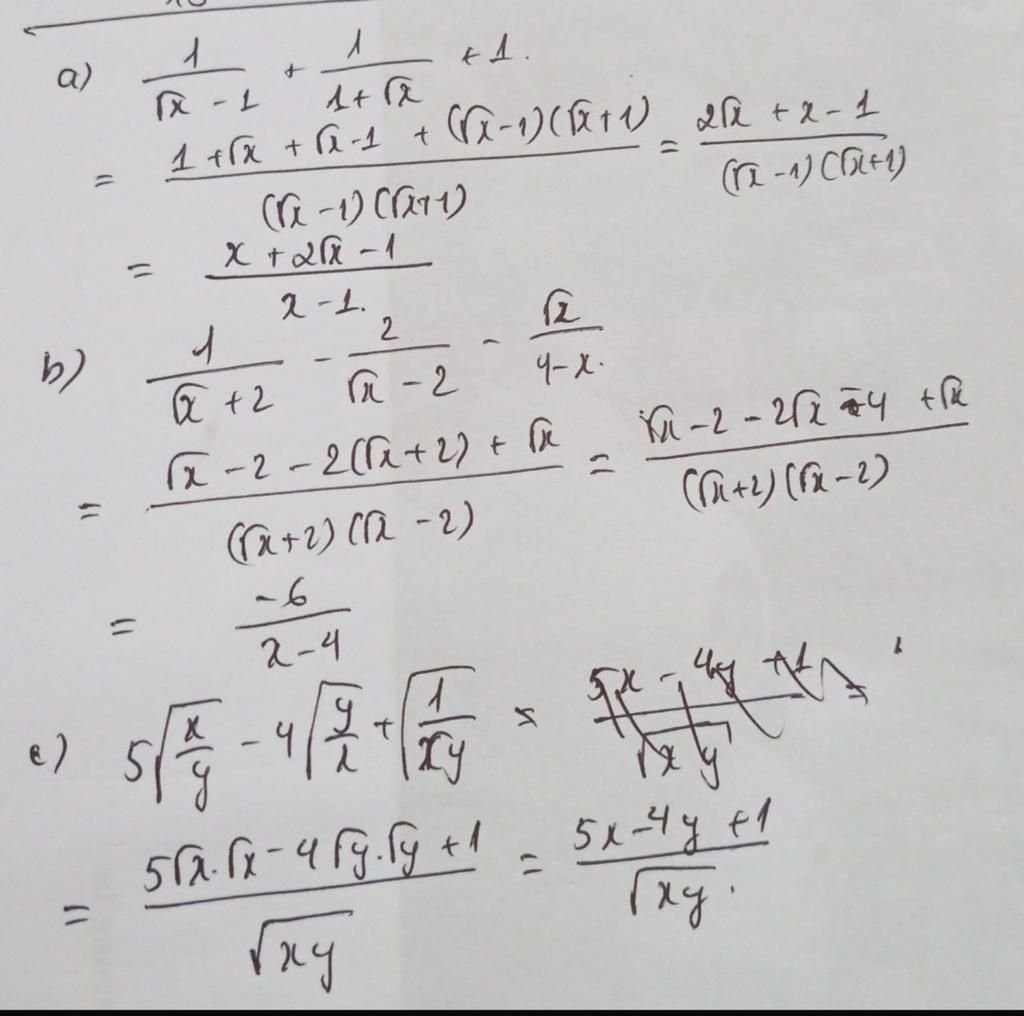 a) 1/(√x - 1) + 1/(1 + √x) + 1.
= (1 + √x + √x - 1 + (√x - 1)(√x + 1))/((√x - 1)(√x + 1)) = (2√x + x - 1)/((√x - 1)(√x + 1))
= (x + 2√x - 1)/(x - 1).
b) 1/(√x + 2) - 2/(√x - 2) - √x/(4 - x).
= (√x - 2 - 2(√x + 2) + √x)/((√x + 2)(√x - 2)) = (√x - 2 - 2√x - 4 + √x)/((√x + 2)(√x - 2))
= -6/(x - 4)
c) 5√(x/y) - 4√(y/x) + √(1/(xy)) = (5x - 4y + 1)/√(xy) =
= (5√x.√x - 4√y.√y + 1)/√(xy) = (5x - 4y + 1)/√(xy).